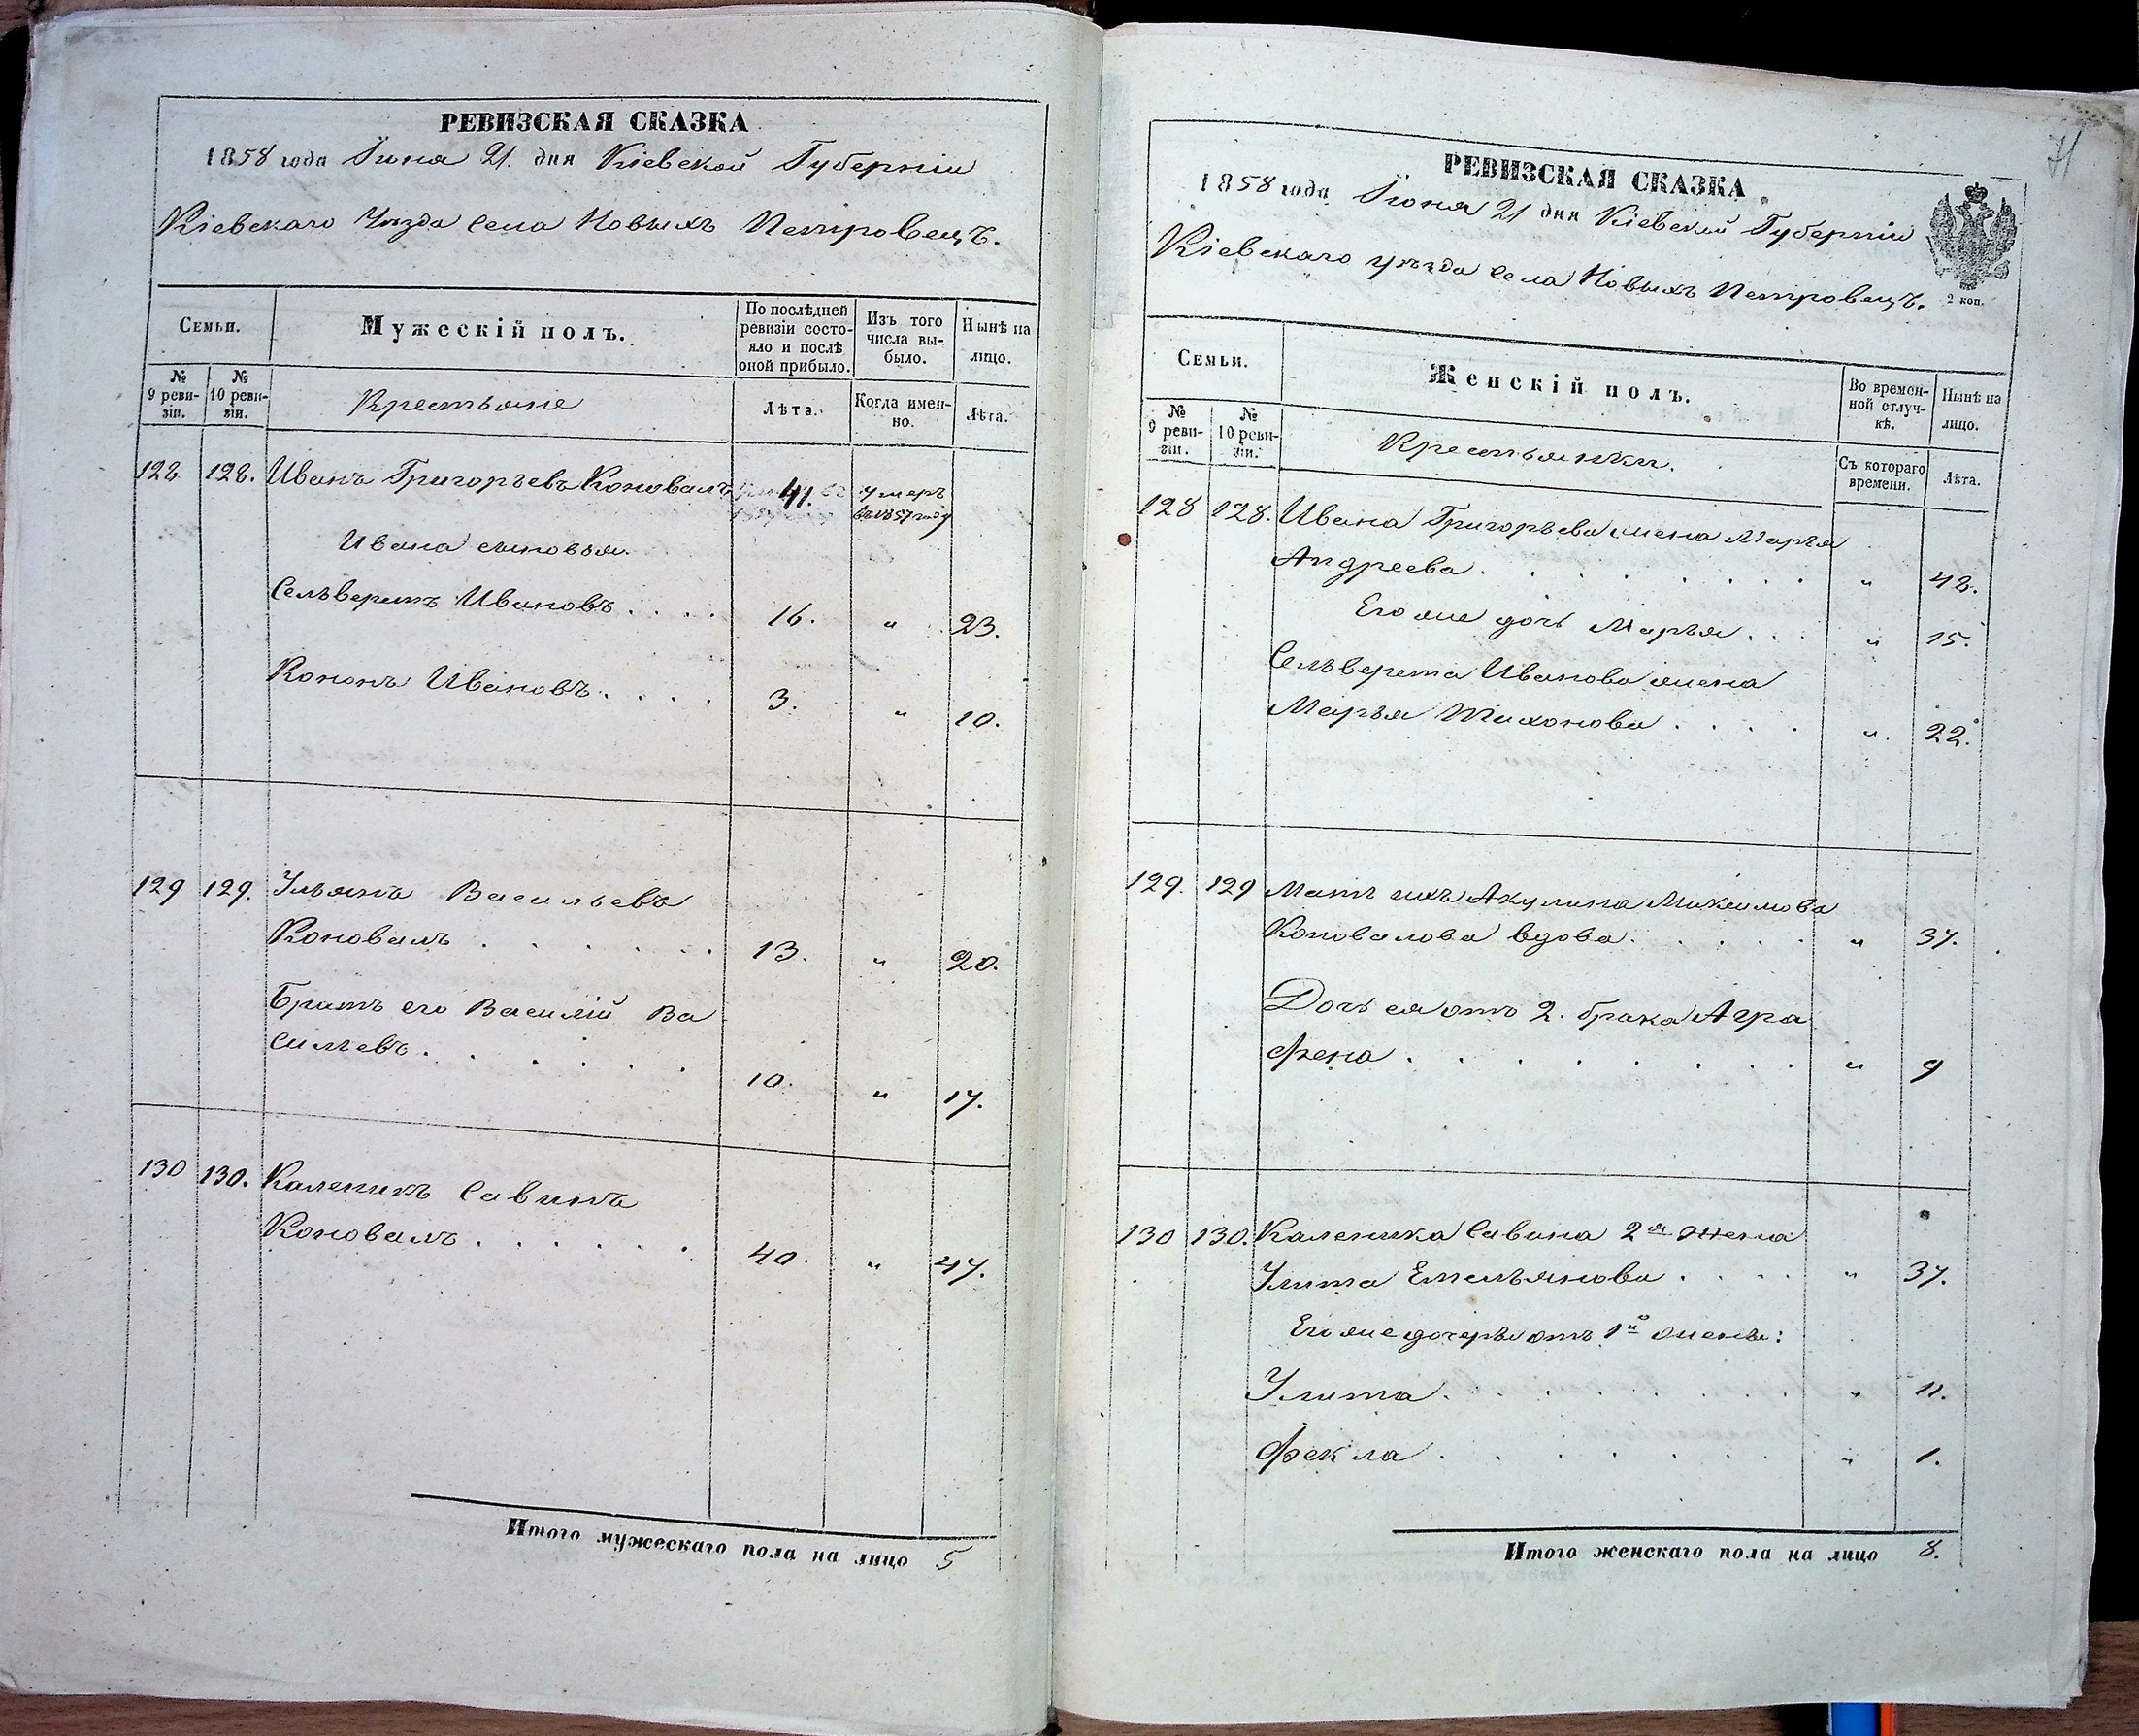 РЕВИЗСКАЯ СКАЗКА
1858 года Іюня 21. дня Кіевской Губерніи
Кіевскаго Уѣзда Села Новыхъ Петровецъ.
Семьи.
Мужескій полъ.
По послѣдней ревизіи состояло и послѣ оной прибыло.
Изъ того числа выбыло.
Нынѣ на лицо.
№ 9 ревизіи.
№ 10 ревизіи.
Крестьяне
Лѣта.
Когда именно.
Лѣта.
128 128. Иванъ Григорьевъ Коновалъ 41. умеръ
въ 1857 году
Ивана сыновья.
Сельверстъ Ивановъ . . . . 16. " 23.
Кононъ Ивановъ . . . . 3. " 10.
129 129. Ульянъ Васильевъ
Коновалъ . . . . . . 13. " 20.
Братъ его Василій Ва
сильевъ . . . . . . 10. " 17.
130 130. Каленикъ Савинъ
Коновалъ . . . . . . 40. " 47.
Итого мужескаго пола на лицо 5
71
РЕВИЗСКАЯ СКАЗКА
1858 года Іюня 21 дня Кіевской Губерніи
Кіевскаго уѣзда села Новыхъ Петровецъ.
2 коп.
Семьи.
Женскій полъ.
Во временной отлучкѣ.
Нынѣ на лицо.
№ 9 ревизіи.
№ 10 ревизіи.
Крестьянки.
Съ котораго времени.
Лѣта.
128 128. Ивана Григорьева жена Марья
Андреева . . . . . . . . " 48.
Его же дочь Марья . . . " 15.
Сельверста Иванова жена
Марья Тихонова . . . . " 22.
129. 129 Мать ихъ Акулина Максимова
Коновалова вдова . . . . . " 37.
Дочь ея отъ 2. брака Агра
фена . . . . . . . . " 9
130 130. Каленика Савина 2я жена
Улита Емельянова . . . . " 37.
Его же дочери отъ 1й жены:
Улита . . . . . . . . " 11.
Фекла . . . . . . . . " 1.
Итого женскаго пола на лицо 8.